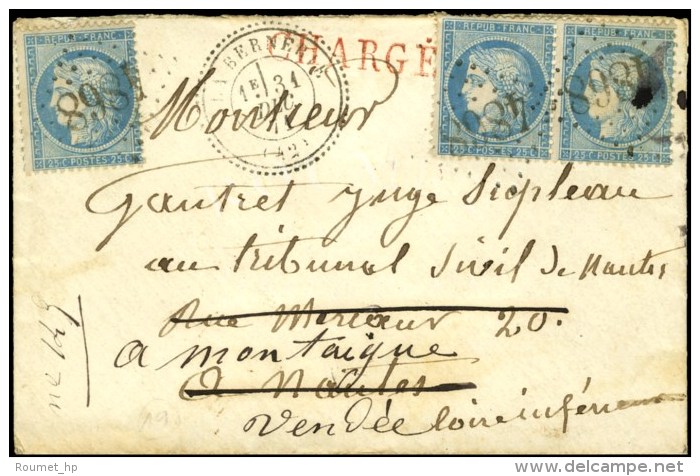 REPUB · FRANC · REPUB · FRANC · REPUB · FRANC ·
LA BERNERIE
CHARGÉ
1E 31
DEC
(42)
25 C · POSTES · 25 C 25 C · POSTES · 25 C 25 C · POSTES · 25 C
Monsieur
Gautret Juge Supleau
au tribunal Sivil de Nantes
Rue Mercœur 20.
a montaigue
a Nantes
Vendée loire inférieure
Roumet_hp delcampe.net